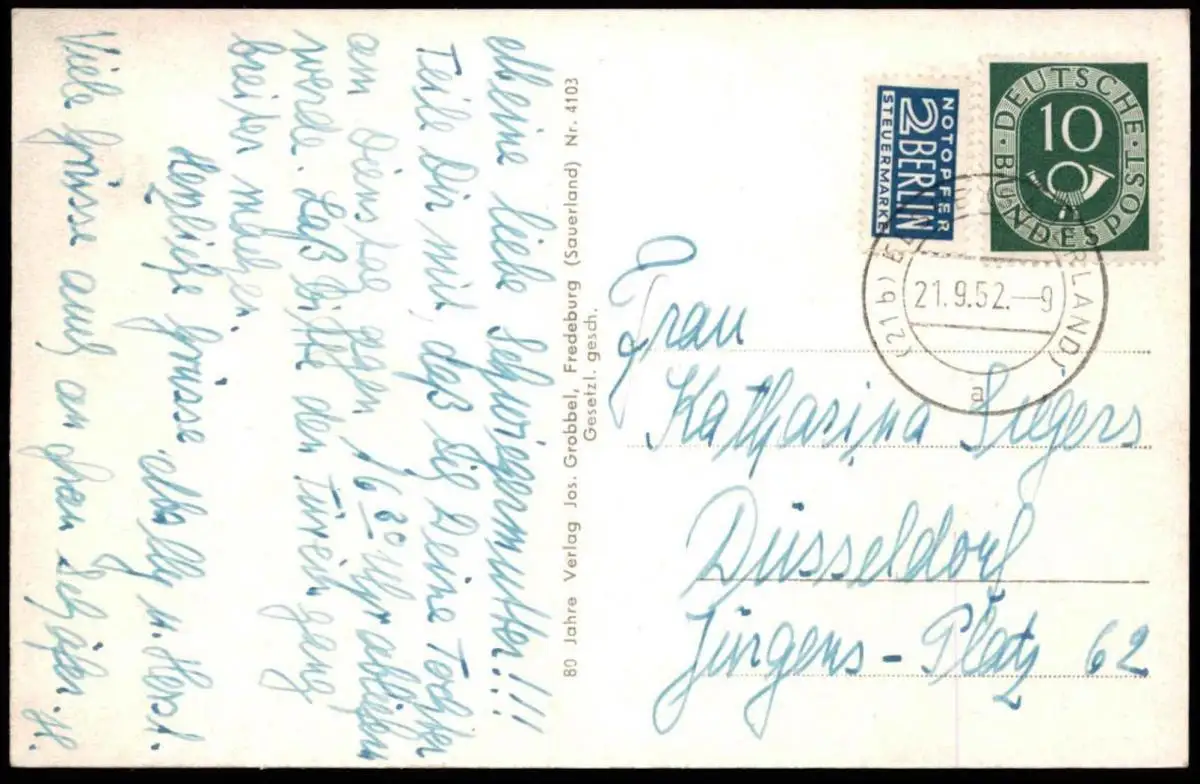 Meine liebe Schwiegermutter!!!
Teile Dir mit, daß ich Deine Tochter
am Dienstag gegen 16 30 Uhr abliefern
werde. Laß bitte den Türeingang
breiter machen.
Herzliche Grüsse Mally u. Horst.
Viele Grüsse auch an Frau Schäfer. H.
80 Jahre Verlag Jos. Grobbel, Fredeburg (Sauerland) Nr. 4103
Gesetzl. gesch.
NOTOPFER
2 BERLIN
STEUERMARKE
DEUTSCHE
10
BUNDESPOST
(21b)
ERLAND)
21.9.52.-9
a
Frau
Katharina Siegers
Düsseldorf
Jürgens-Platz 62